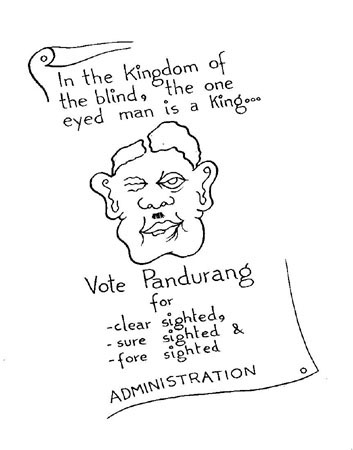 In the kingdom of
the blind, the one
eyed man is a king...
Vote Pandurang
for
-clear sighted,
- sure sighted &
-fore sighted
ADMINISTRATION